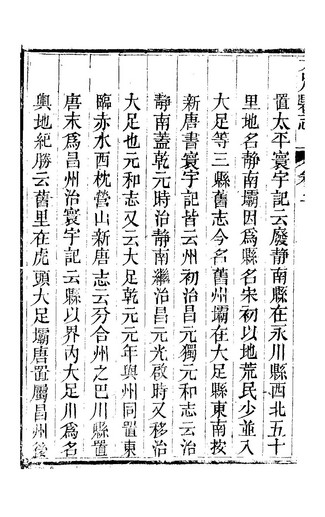 置太平寰宇記云廢靜南縣在永川縣西北五十
里地名靜南壩因爲縣名宋初以地荒民少並入
大足等三縣舊志今名舊州壩在大足縣東南按
新唐書寰宇記皆云州初治昌元獨元和志云治
靜南蓋乾元時治靜南繼治昌元光啟時又移治
大足也元和志又云大足乾元元年與州同置東
臨赤水西枕營山新唐志云分合州之巴川縣置
唐末爲昌州治寰宇記云縣以界內大足川爲名
輿地紀勝云舊里在虎頭大足壩唐置屬昌州後